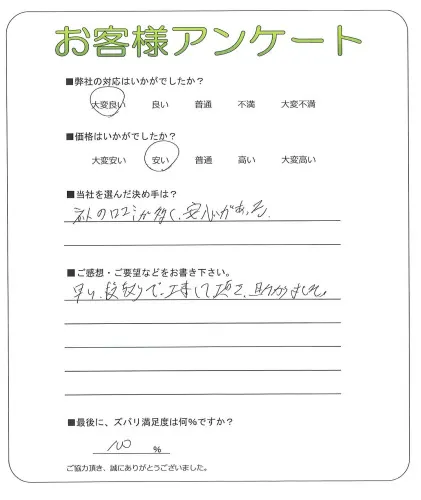 お客様アンケート
■弊社の対応はいかがでしたか?
大変良い 良い 普通 不満 大変不満
■価格はいかがでしたか?
大変安い 安い 普通 高い 大変高い
■当社を選んだ決め手は?
ネットの口コミが多く、安心感がある。
■ご感想・ご要望などをお書き下さい。
早い、段取りで工事して頂き、助かりました。
■最後に、ズバリ満足度は何%ですか?
100 %
ご協力頂き、誠にありがとうございました。